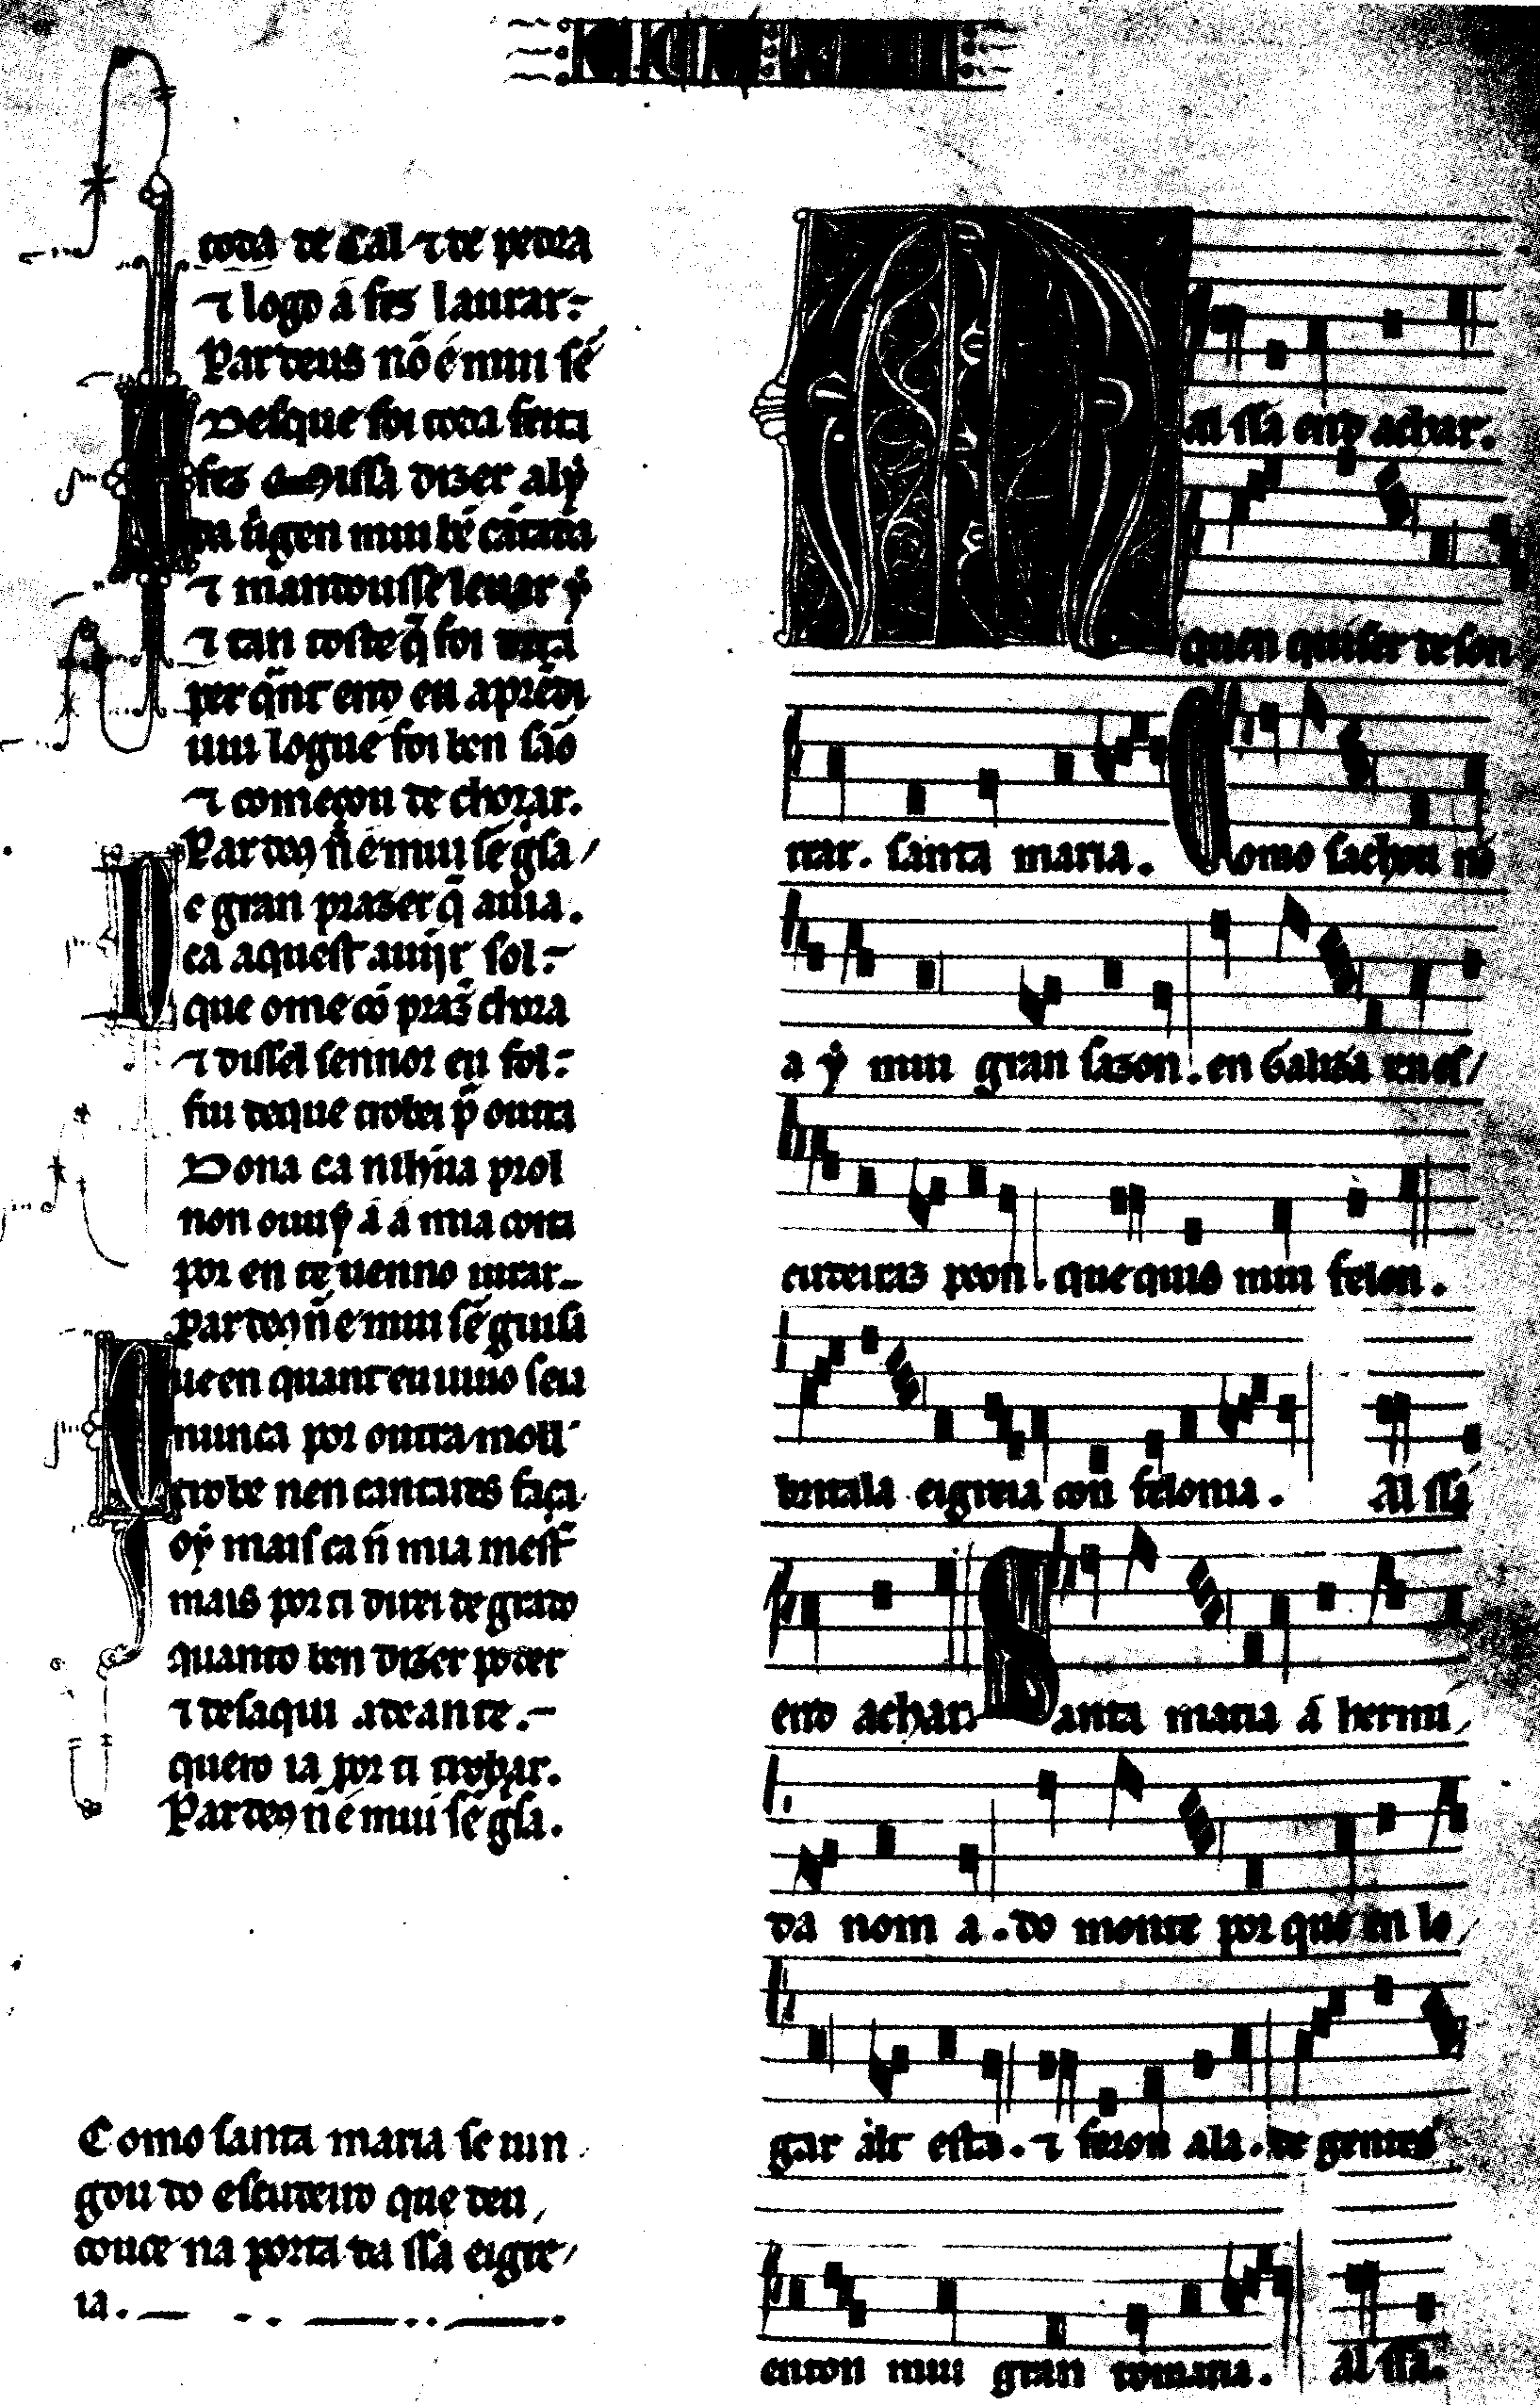 toda de cal ⁊ de pedra
⁊ logo a fes laurar:-
Par deus nõ é mui sẽ
Desque foi toda feita
fez missa dizer alý
da uirgen mui bẽ cãtada
⁊ mandousse leuar ý
⁊ tan toste q̃ foi
per q̃nt end en aprẽdi
uiu logue foi ben são
⁊ começou de chorar.
Par deus ñ é mui sẽ g̃sa
De gran prazer q̃ auia.
ca aquest auijr sol:-
que ome cõ praz̃ chora
⁊ dissel sennor eu fol:-
fui deque trobei p̃ outra
Dona ca nihũa prol
non ouuý á á mia coita
por en te uenno iurar-
Par deus ñ é mui sẽ guisa
Que en quant eu uiuo seia
nunca por outra moll
trobe nen cantares faça
oý mais ca ñ mia mest̃
mais por ti direi de grado
quanto ben dizer poder
⁊ desaqui adeante.-
quero ia por ti trobar.
Par deus ñ é mui sẽ g̃sa.
Como santa maria se uin
gou do escudeiro que deu
couce na porta da ssa eigre
ia.
Mal ssa end achar.
quen quiser deson
rrar. santa maria. Como sachou nõ
a ý mui gran sazon. en Galiza un es
cudeiraz peon. que quis mui felon.
britala eigreia con felonia. Al ssa
end achar. Santa maria á hermi
da nom a. do monte por que en lo
gar alt esta. ⁊ feron ala. de gentes
enton mui gran romaria. al ssa.